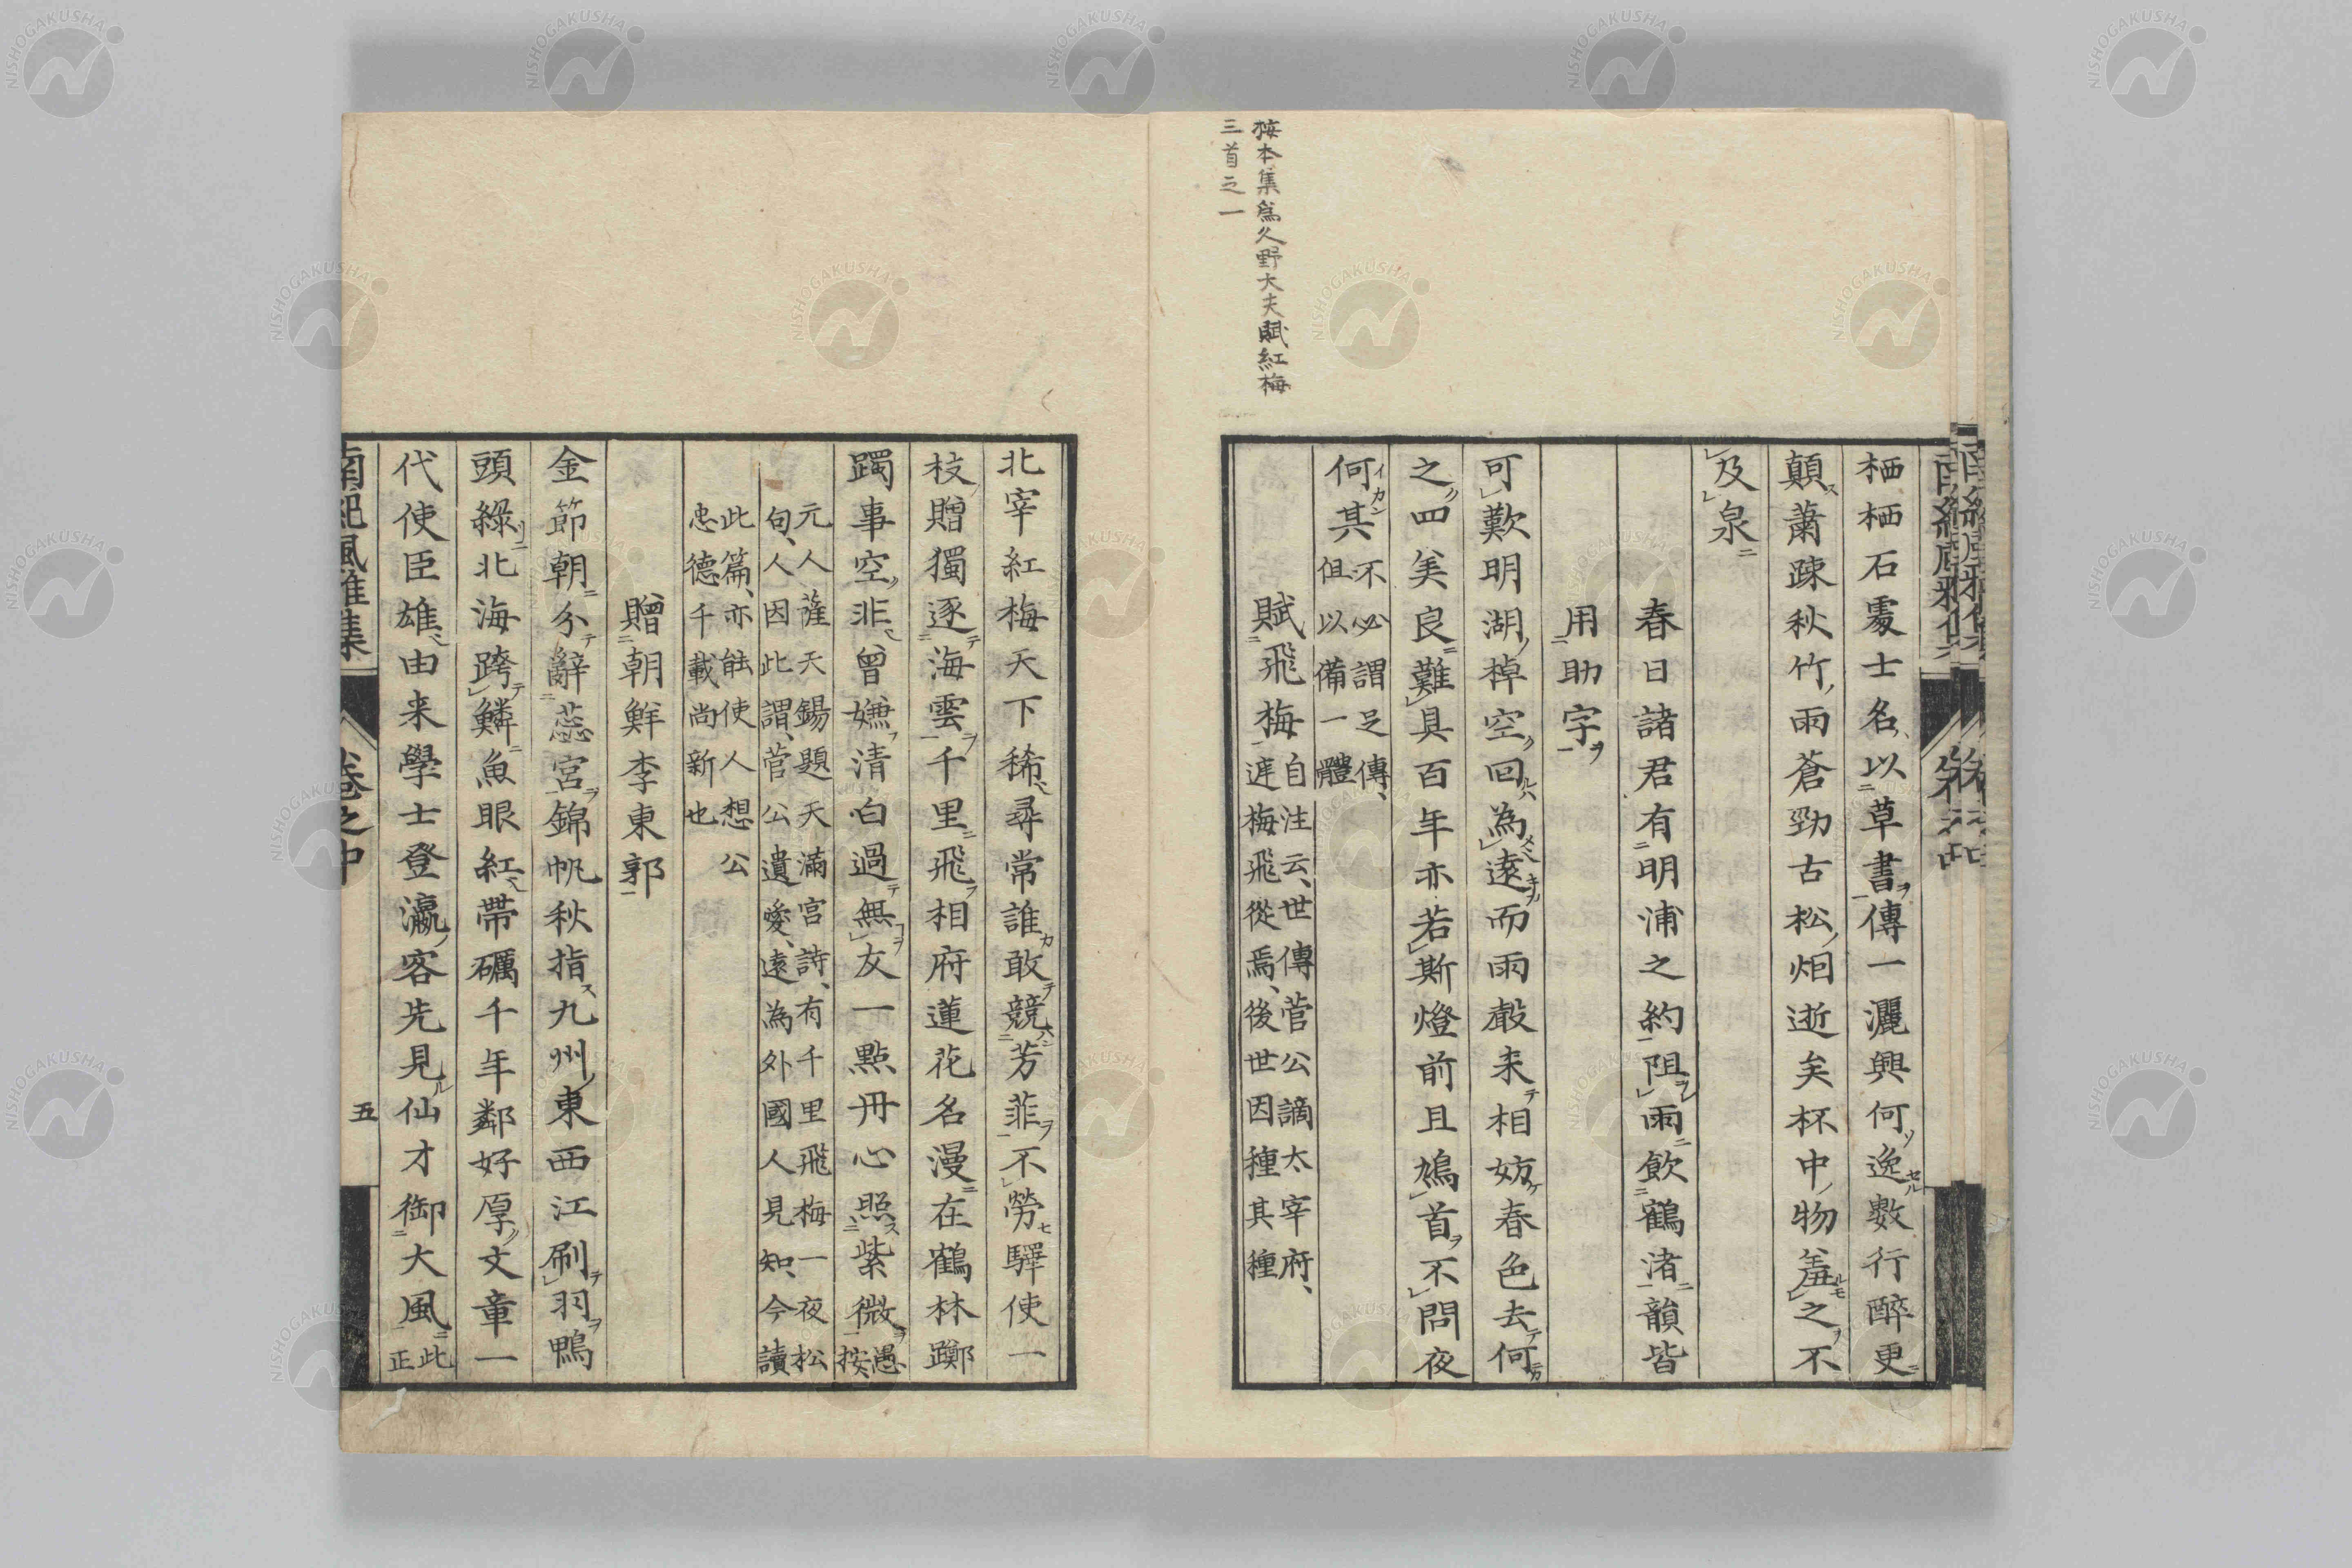 按本集為久野大夫賦紅梅
三首之一
栖栖石處士名以草書傳一灑興何逸數行醉更
顛蕭疎秋竹雨蒼勁古松烟逝矣杯中物羞之不
及泉
春日諸君有明浦之約阻雨飲鶴渚韻皆
用助字
可歎明湖棹空回為遠而雨聲来相妨春色去何
之四美良難具百年亦若斯燈前且鳩首不問夜
何其不必謂足傳、
但以備一體
賦飛梅自注云、世傳菅公謫太宰府、
遮梅飛從焉、後世因種其種
北宰紅梅天下稀尋常誰敢競芳菲不勞驛使一
枝贈獨逐海雲千里飛相府蓮花名漫在鶴林躑
躅事空非曾嫌清白過無友一點丹心照紫微愚
按、
元人薩天錫題天滿宮詩、有千里飛梅一夜松
句、人因此謂、菅公遺愛、遠為外國人見知、今讀
此篇、亦能使人想公
忠德千載尚新也
贈朝鮮李東郭
金節朝分辭蕊宮錦帆秋指九州東西江刷羽鴨
頭綠北海跨鱗魚眼紅帶礪千年鄰好厚文章一
代使臣雄由来學士登瀛客先見仙才御大風此
正
南紀風雅集 卷之中 五